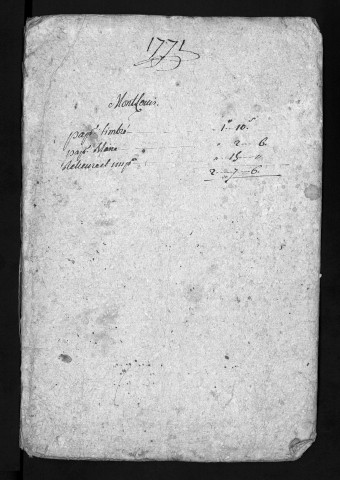 1771
Montlouis.
papr. timbré 1ᵗᵗ 10ˢ
papr. blanc " 2 — 6.
Relieure et imp. " 15 — "
2 — 7 — 6.